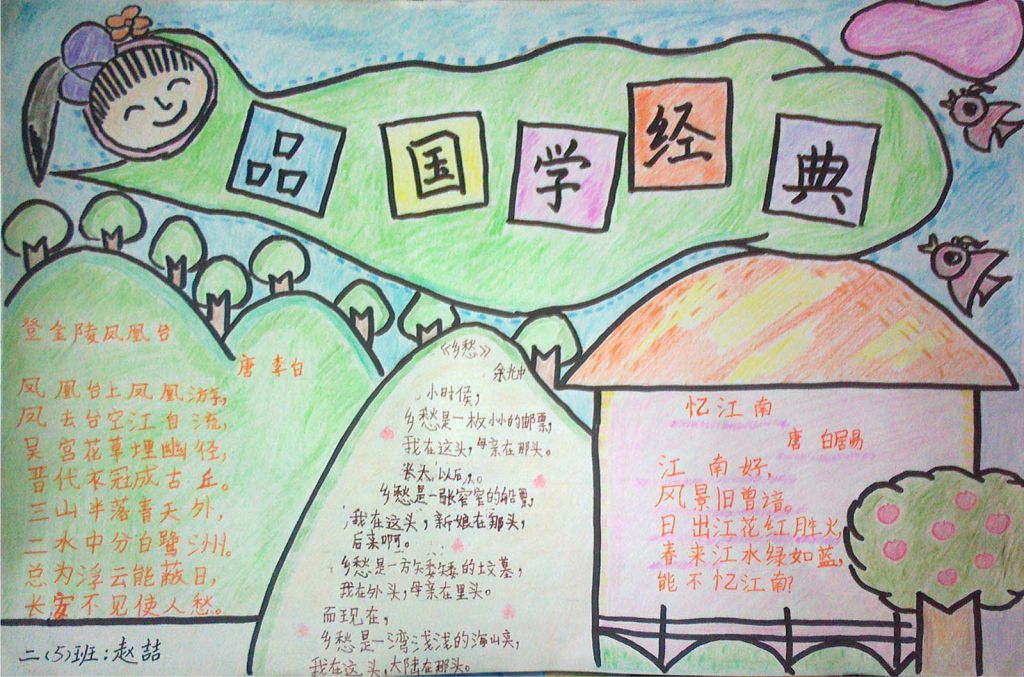 品国学经典
登金陵凤凰台
唐 李白
凤凰台上凤凰游,
凤去台空江自流,
吴宫花草埋幽径,
晋代衣冠成古丘。
三山半落青天外,
二水中分白鹭洲。
总为浮云能蔽日,
长安不见使人愁。
二(5)班:赵喆
《乡愁》
余光中
小时候,
乡愁是一枚小小的邮票,
我在这头,母亲在那头。
长大以后,
乡愁是一张窄窄的船票,
我在这头,新娘在那头,
后来啊。
乡愁是一方矮矮的坟墓,
我在外头,母亲在里头。
而现在,
乡愁是一湾浅浅的海峡,
我在这头,大陆在那头。
忆江南
唐 白居易
江南好,
风景旧曾谙。
日出江花红胜火,
春来江水绿如蓝,
能不忆江南?